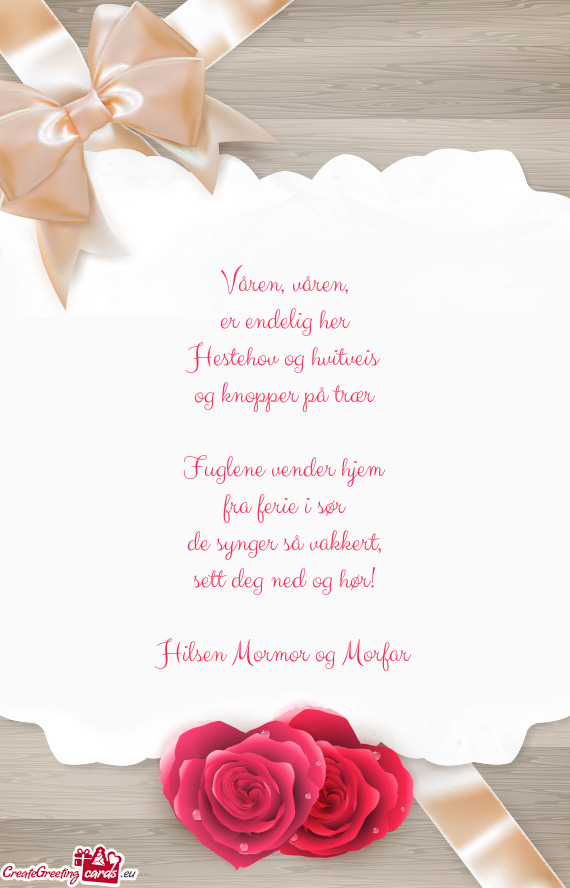 Våren, våren,
er endelig her
Hestehov og hvitveis
og knopper på trær
Fuglene vender hjem
fra ferie i sør
de synger så vakkert,
sett deg ned og hør!
Hilsen Mormor og Morfar
CreateGreeting cards .eu